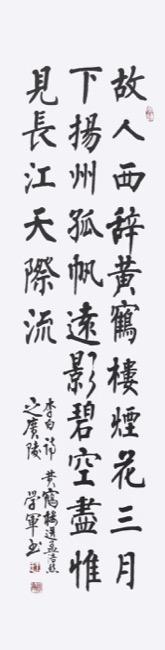 故人西辞黄鶴樓煙花三月
下揚州孤帆遠影碧空盡惟
見長江天際流
李白詩 黄鶴樓送孟浩然
之廣陵
学軍书